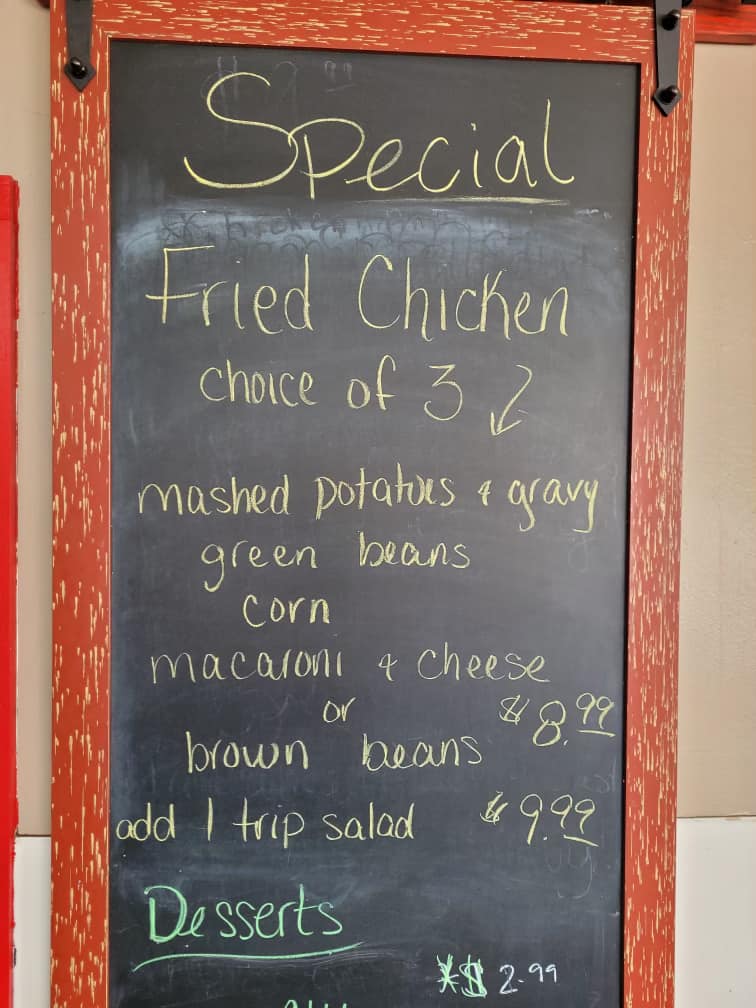 Special
Fried Chicken
choice of 3
mashed potatoes & gravy
green beans
corn
macaroni & cheese
or $8.99
brown beans
add 1 trip salad $9.99
Desserts
*$2.99